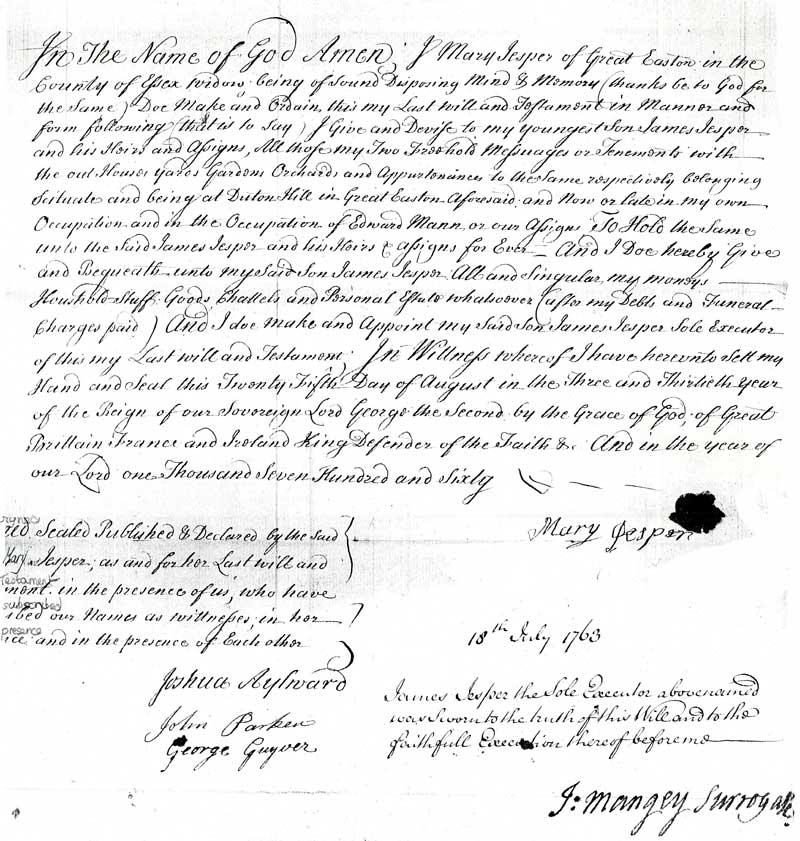 In The Name of God Amen; I Mary Jesper of Great Easton in the
County of Essex widow; being of Sound Disposing Mind & Memory (thanks be to God for
the Same) Doe Make and Ordain this my Last will and Testament in Manner and
form following (that is to Say) I Give and Devise to my youngest Son James Jesper
and his Heirs and Assigns, All those my Two Freehold Messuages or Tenements with
the out Houses Yards Gardens Orchards and Appurtenances to the Same respectively belonging
Scituate and being at Duton Hill in Great Easton Aforesaid; and Now or late in my own
Occupation and in the Occupation of Edward Mann or our Assigns To Hold the Same
unto the Said James Jesper and his Heirs & assigns for Ever — And I Doe hereby Give
and Bequeath unto my Said Son James Jesper All and Singular, my moneys
Houshold Stuff Goods Chattels and Personal Estate whatsoever (after my Debts and Funeral
Charges paid) And I doe make and Appoint my Said Son James Jesper Sole Executor
of this my Last will and Testament; In Wittness whereof I have hereunto Sett my
Hand and Seal this Twenty Fifth Day of August in the Three and Thirtieth Year
of the Reign of our Sovereign Lord George the Second by the Grace of God, of Great
Brittain France and Ireland King Defender of the Faith &c And in the year of
our Lord one Thousand Seven Hundred and Sixty
Mary Jesper
signed
red Sealed Published & Declared by the Said
Mary Jesper; as and for her Last will and
Testament
ment. in the presence of us, who have
subscribed
ibed our Names as wittnesses; in her
presence
nce: and in the presence of Each other
Joshua Aylward
John Parker
George Guyver
18th July 1763
James Jesper the Sole Executor abovenamed
was Sworn to the truth of this Will and to the
faithfull Execution thereof before me
J: Mangey Surrogate